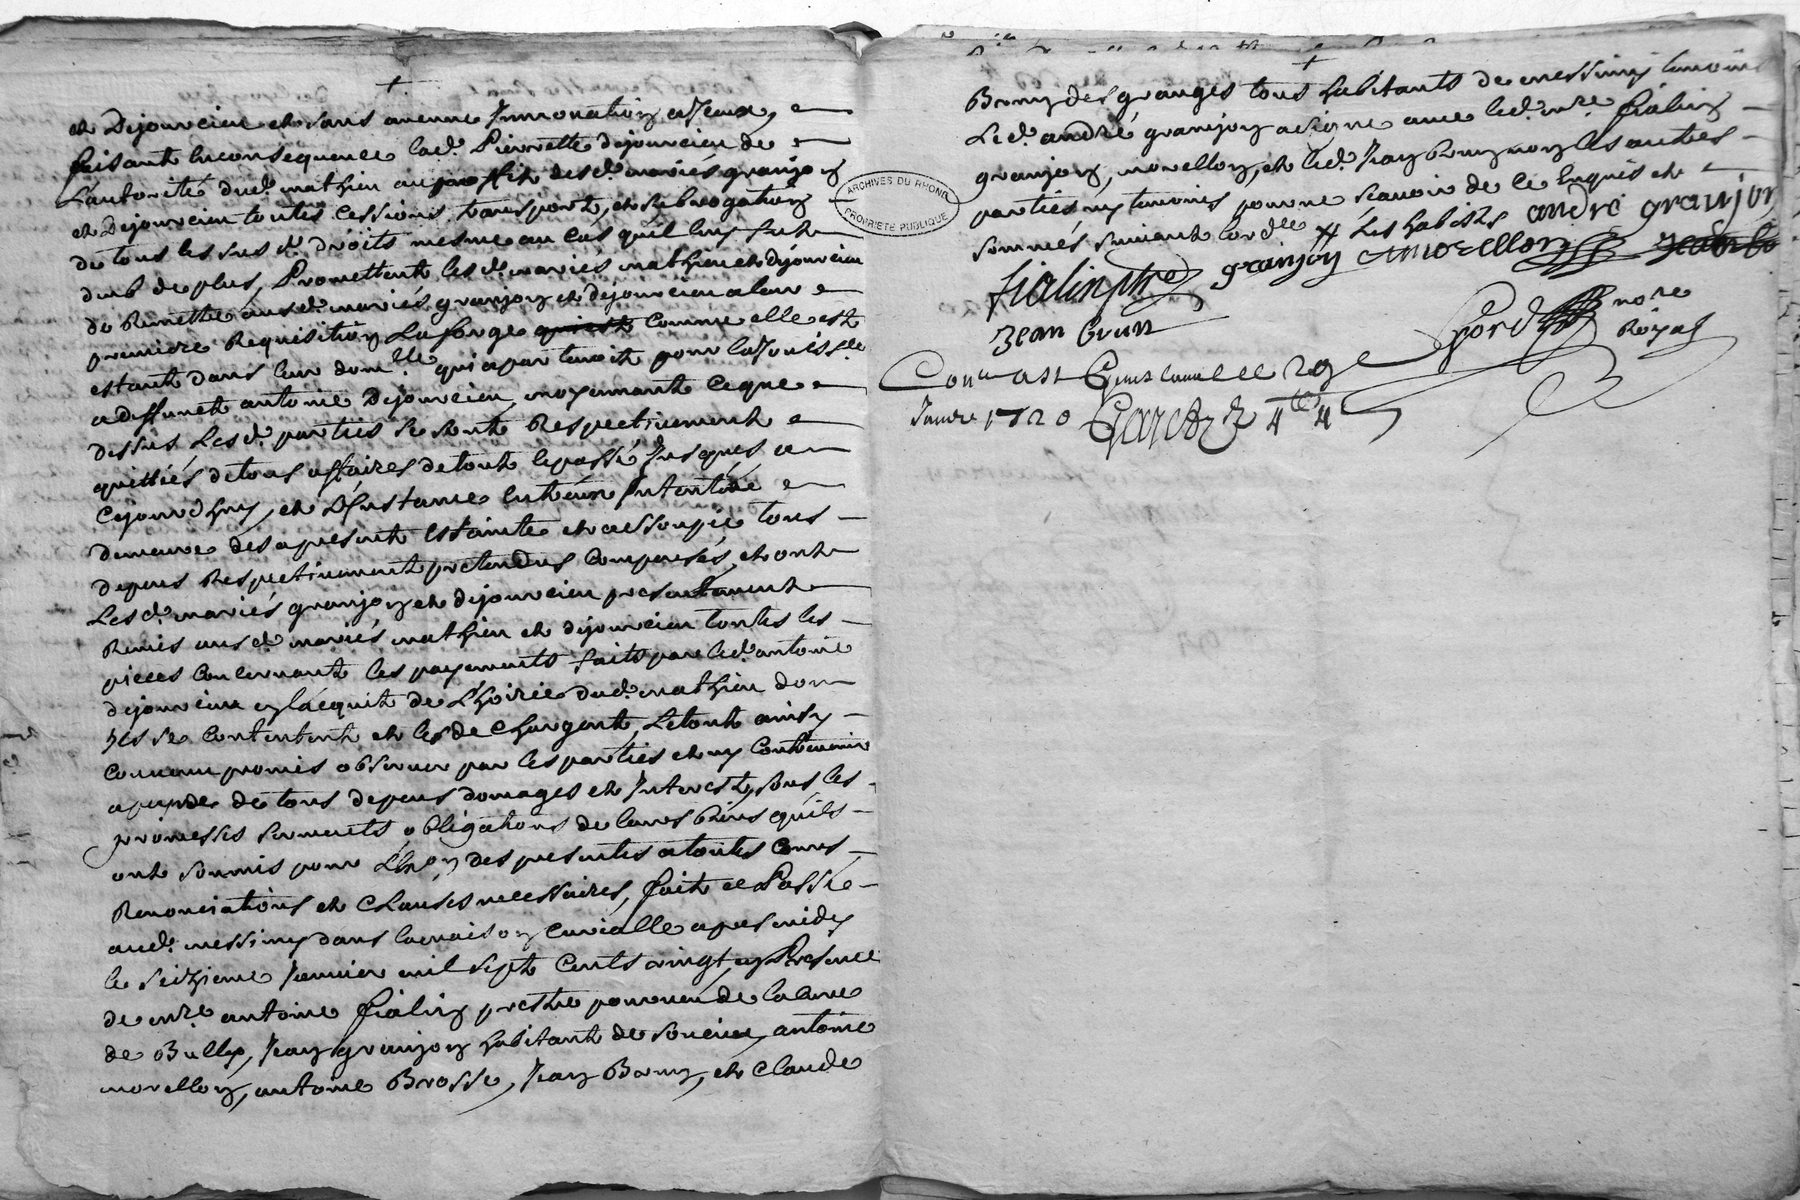 et Dejourcieu et sans aucune Innovation a Iceux,
faisant En consequence lad. Pierrette dejourcieu de
L'autorité dud. mathieu au proffit desd. mariés granjon
et dejourcieu toutes Cessions, transport, et subrogation
de tous les susd. droits mesme au cas qu'il luy fut
dub de plus, Promettent lesd. mariés mathieu et dejourcieu
de Remettre ausd. mariés granjon et dejourcieu a leur
premiere Requisition La forge comme elle est
estant dans leur dom.lle qui apartenoit pour la
a deffunct antoine Dejourcieu, moyennant ce que
dessus, Lesd. parties se sont Respectivement
quittiés de tous affaires de tout le passé Jusques a
cejourd'huy, et L'Instance Intentée
demeure des a present Estainte et assoupie tous
depens Respectivement pretendus Compensés, et ont
Lesd. mariés granjon et dejourcieu presentement
Remis ausd. mariés mathieu et dejourcieu toutes les
pieces Concernant les payements faits par led. antoine
dejourcieu en l'acquit de L'hoirie dud. mathieu dont
Ils se contentent et les dechargent, Le tout ainsy
convenu promis observer par les parties et ny Contrevenir
a peyne de tous depens domages et Interests, sous les
promesses serments, obligations de leurs biens qu'ils
ont soumis pour L'Ex.on des presentes a toutes Cours,
Renonciations et clauses necessaires, fait et Passé
aud. messimy dans la maison curialle apres midy
le seizieme Janvier mil sept Cents vingt, en Presence
de mre. antoine fialin prestre pourveu de la Cure
de Bully, Jean granjon habitant de soucieu, antoine
morellon, antoine Brosse, Jean Bruny, et Claude
Bruny des granges tous habitants de messimy temoins
Led. andré granjon a signé avec led. mre. fialin
granjon, morellon, et led. Jean Bruny non les autres
parties ny temoins pour ne scavoir de ce Enquis et
sommés suivant l'ord.ce
andré granjon
fialin ptre granjon A morellon
Jean brun
notre Royal
Con.lé a St Genis Laval le 29e
Janvr 1720